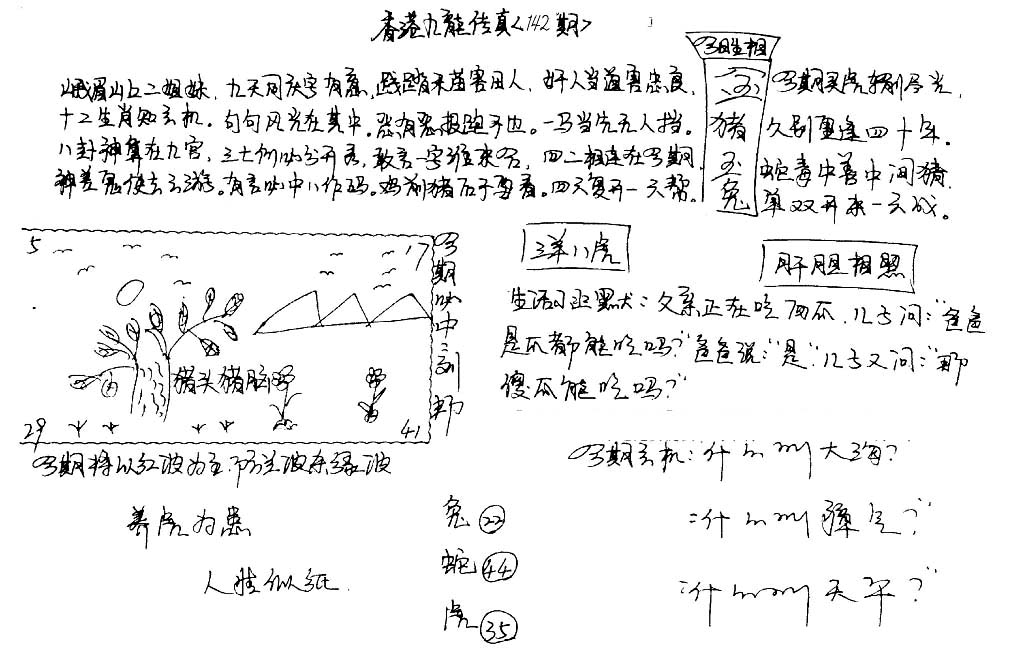 香港九龍传真<142期>
今期生相
玄
猪
玉
兔
峨眉山上二姐妹，九天同庆字有意，践踏禾苗害田人，奸人当道害忠良，
十二生肖知玄机。句句风光在其中。恶有恶报跑不也。一马当先无人挡。
八卦神算在九宫，三七分明必开，敢言一字，四二相连在今期
神差鬼使去云游。有言必中八作码。鸡前猪后子再看。四天复开一天帮。
今期买虎拐别尽光，
久别重逢四十年。
蛇毒中善中间猪，
单双开来一云战。
三羊八虎
肝胆相照
生活幽默：父亲正在吃西瓜，儿子问："爸爸
是瓜都能吃吗？"爸爸说："是"儿子又问："那
傻瓜能吃吗？"
5
17
29
41
猪头猪脑
今期必中：
今期将以红波为主，防兰波杀绿波
养虎为患
人生似纸
兔22
蛇44
虎35
今期玄机：什么叫大海？
：什么叫 气？"
：什么叫天平？"